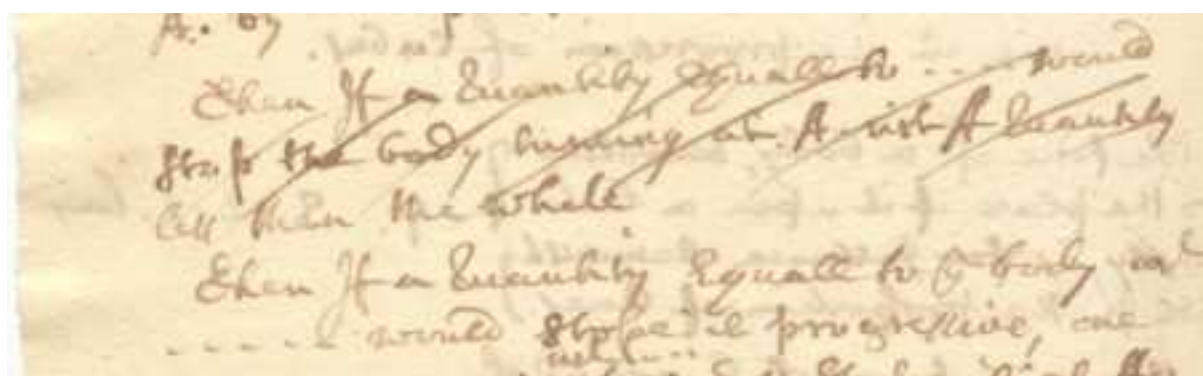 A. by
Then If a Quantity Equall to .... would
stop the body turning at A with A Quantity
less then the whole
Then If a Quantity Equall to ye body in
...... would stop progressive, one